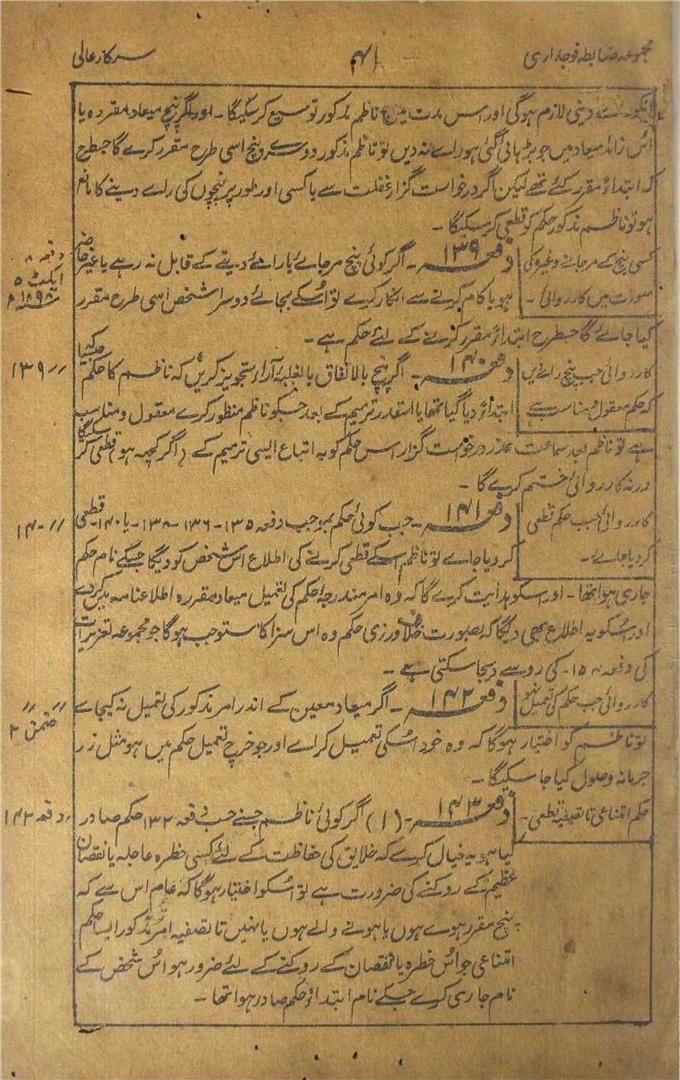 مجموعہ ضابطہ فوجداری
۴۱
سرکار عالی
دینی لازم ہوگی اور اس مدت میں ناظم مذکور توسیع کرسکیگا ۔ اور اگر پنچ میعاد مقررہ یا
اُس زائد میعاد میں جو بڑہائی گئی ہو راے نہ دیں تو ناظم مذکور دوسرے پنچ اسی طرح مقرر کرے گا جسطرح
کہ ابتداءً مقرر کئے تھے لیکن اگر درخواست گزار غفلت سے یا کسی اور طور پر پنچوں کی راے دینے کا مانع
ہو تو ناظم مذکور حکم کو قطعی کرسکیگا ۔
کسی پنچ کے مرجانے وغیرہ کی
صورت میں کارروائی ۔
دفعہ ۱۳۹ ۔ اگر کوئی پنچ مرجائے یا راے دینے کے قابل نہ رہے یا غیر حاضر
ہو یا کام کرنے سے انکار کرے تو اُسکے بجائے دوسرا شخص اسی طرح مقرر
دفعہ ۸
ایکٹ ۵
سنہ ۱۸۹۸ع
کیا جاے گا جسطرح ابتداءً مقرر کرنے کے لئے حکم ہے ۔
کارروائی جب پنچ رائے دیں
کہ حکم معقول و مناسب ہے
دفعہ ۱۴۰ ۔ اگر پنچ بالاتفاق یا بغلبۂ آراء تجویز کریں کہ ناظم کا حکم جیسا کہ
ابتداءً دیا گیا تھا یا اسقدر ترمیم کے بعد جسکو ناظم منظور کرے معقول و مناسب
〃 ۱۳۹
ہے تو ناظم بعد سماعت عذر درخواست گزار اس حکم کو بہ اتباع ایسی ترمیم کے (اگر کچھہ ہو) قطعی کرسکیگا
ورنہ کارروائی ختم کرے گا ۔
کارروائی جب حکم قطعی
کردیا جاے ۔
دفعہ ۱۴۱ ۔ جب کوئی حکم بموجب دفعہ ۱۳۵ ۔ ۱۳۶ ۔ ۱۳۸ ۔ یا ۱۴۰ ۔ قطعی
کردیا جاے تو ناظم اسکے قطعی کرنے کی اطلاع اس شخص کو دیگا جسکے نام حکم
〃 ۱۴۰
جاری ہوا تھا ۔ اور اسکو ہدایت کرے گا کہ وہ امر مندرجۂ حکم کی تعمیل میعاد مقررہ اطلاعنامہ میں کردے
اور اسکو یہ اطلاع بھی دیگا کہ بصورت خلاف ورزی حکم وہ اس سزا کا مستوجب ہوگا جو مجموعہ تعزیرات
کی رو سے دیجا سکتی ہے ۔
کارروائی جب حکم کی تعمیل نہو
دفعہ ۱۴۲ ۔ اگر میعاد معین کے اندر امر مذکور کی تعمیل نہ کیجاے
〃 〃
ضمن ۲
تو ناظم کو اختیار ہوگا کہ وہ خود اسکی تعمیل کراے اور جو خرچ تعمیل حکم میں ہو مثل زر
جرمانہ وصول کیا جا سکیگا ۔
حکم امتناعی تا تصفیہ قطعی ۔
دفعہ ۱۴۳ ۔ (۱) اگر کوئی ناظم جسنے حسب دفعہ ۱۳۲ حکم صادر
دفعہ ۱۴۲
کیا ہو یہ خیال کرے کہ خلایق کی حفاظت کے لئے کسی خطرہ عاجلہ یا نقصان
عظیم کے روکنے کی ضرورت ہے تو اُسکو اختیار ہوگا کہ عام اس سے کہ
پنچ مقرر ہوے ہوں یا ہونے والے ہوں یا نہیں تا تصفیہ امر مذکور ایسا حکم
امتناعی جو اُس خطرہ یا نقصان کے روکنے کے لئے ضرور ہو اُس شخص کے
نام جاری کرے جسکے نام ابتداءً حکم صادر ہوا تھا ۔